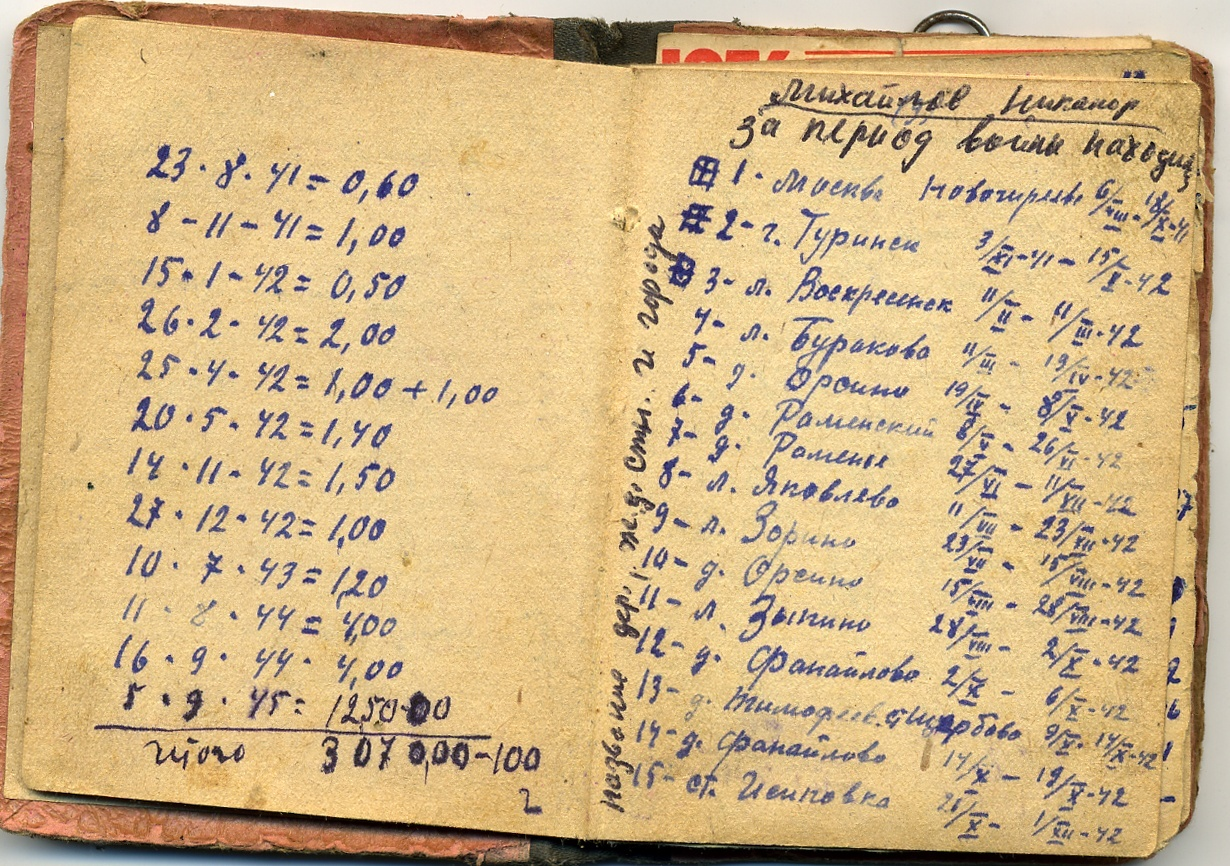 23 · 8 · 41 = 0,60
8 - 11 - 41 = 1,00
15 · 1 - 42 = 0,50
26 · 2 · 42 = 2,00
25 · 4 · 42 = 1,00 + 1,00
20 · 5 · 42 = 1,40
14 · 11 - 42 = 1,50
27 · 12 · 42 = 1,00
10 · 7 · 43 = 1,20
11 - 8 · 44 = 4,00
16 · 9 · 44 · 4,00
5 · 9 · 45 =
итого
2
Михайлов Никанор
за период войны находил
название дер., ж.д. стн. и города
1 - Москва Новогиреево 6/VIII - 18/X-41
2 - г. Туринск 3/XI-41 - 15/X-42
3 - л. Воскресинск 11/II - 11/III-42
4 - л. Бураково 11/III - 19/IV-42
5 - д. Орсино 19/IV - 8/V-42
6 - д. Раменский 8/V - 26/VI-42
7 - д. Раменье 27/VI - 11/VII-42
8 - л. Яковлево 11/VII - 23/VII-42
9 - л. Зорино 23/VII - 15/VIII-42
10 - д. Орсино 15/VIII - 28/VIII-42
11 - л. Зыпино 28/VIII - 2/X-42
12 - д. Фанайлово 2/X - 6/X-42
13 - д. 9/X - 14/X-42
14 - д. Фанайлово 14/X - 19/X-42
15 - ст. Исиповка 21/X - 1/XII-42